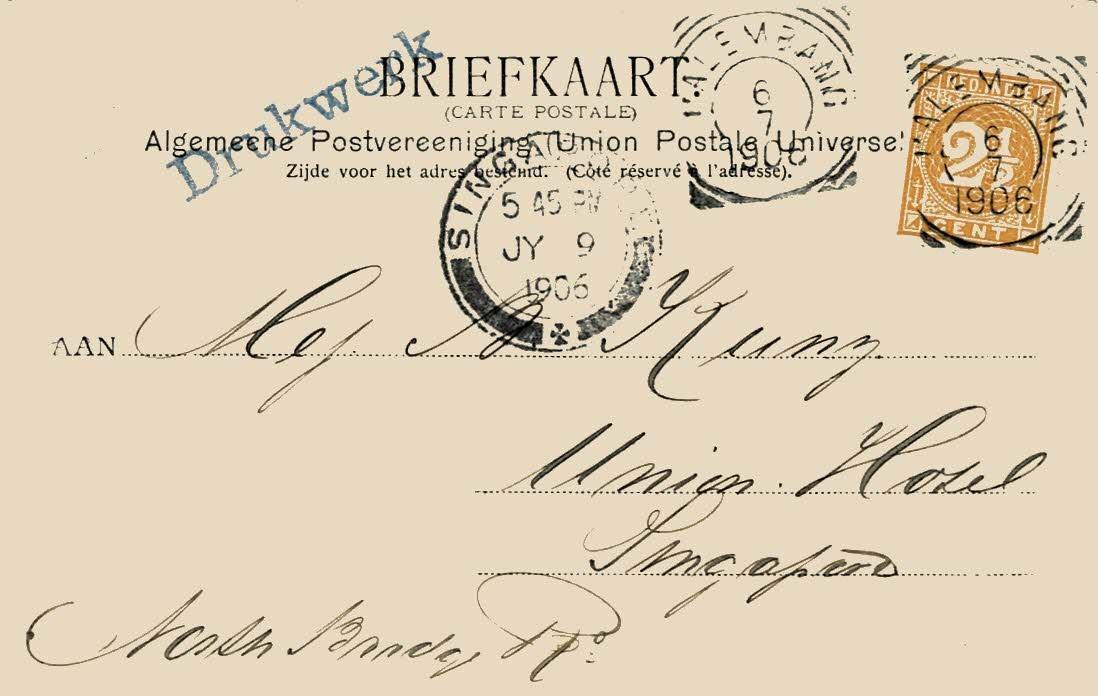 Drukwerk
BRIEFKAART.
(CARTE POSTALE)
Algemeene Postvereeniging (Union Postale Universel
Zijde voor het adres bestemd. (Côté réservé à l'adresse).
PALEMBANG
6
7
1906
PALEMBANG
6
7
1906
NED. INDIE
2½
CENT
SINGAPORE
5 45 PM
JY 9
1906
AAN Mej. Kuny
Union Hotel
Singapore
North Bridge Rd